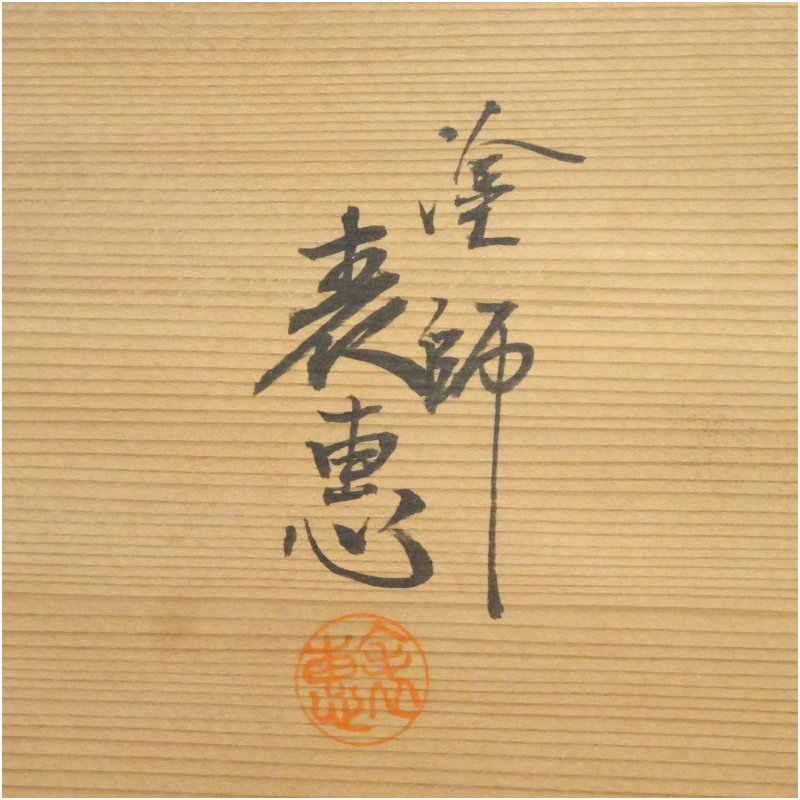 塗師
表恵